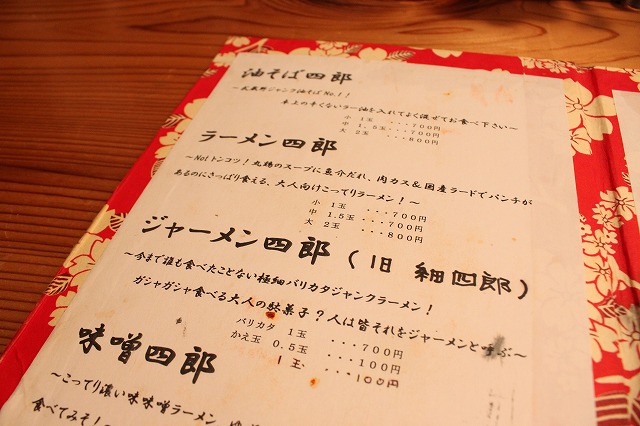 油そば四郎
～武蔵野ジャンク油そばNo.1！
卓上の辛くないラー油を入れてよく混ぜてお食べ下さい～
小 1玉 ･･･700円
中 1.5玉 ･･･700円
大 2玉 ･･･800円
ラーメン四郎
～Not トンコツ！丸鶏のスープに魚介だれ、肉カス＆国産ラードでパンチが
あるのにさっぱり食える、大人向けこってりラーメン！～
小 1玉 ･･･700円
中 1.5玉 ･･･700円
大 2玉 ･･･800円
ジャーメン四郎（旧 細四郎）
～今まで誰も食べたことない極細バリカタジャンクラーメン！
ガシャガシャ食べる大人の駄菓子？人は皆それをジャーメンと呼ぶ～
バリカタ 1玉 ･･･700円
かえ玉 0.5玉 ･･･100円
1玉 ･･･100円
味噌四郎
～こってり濃い味味噌ラーメン
食べてみそ！